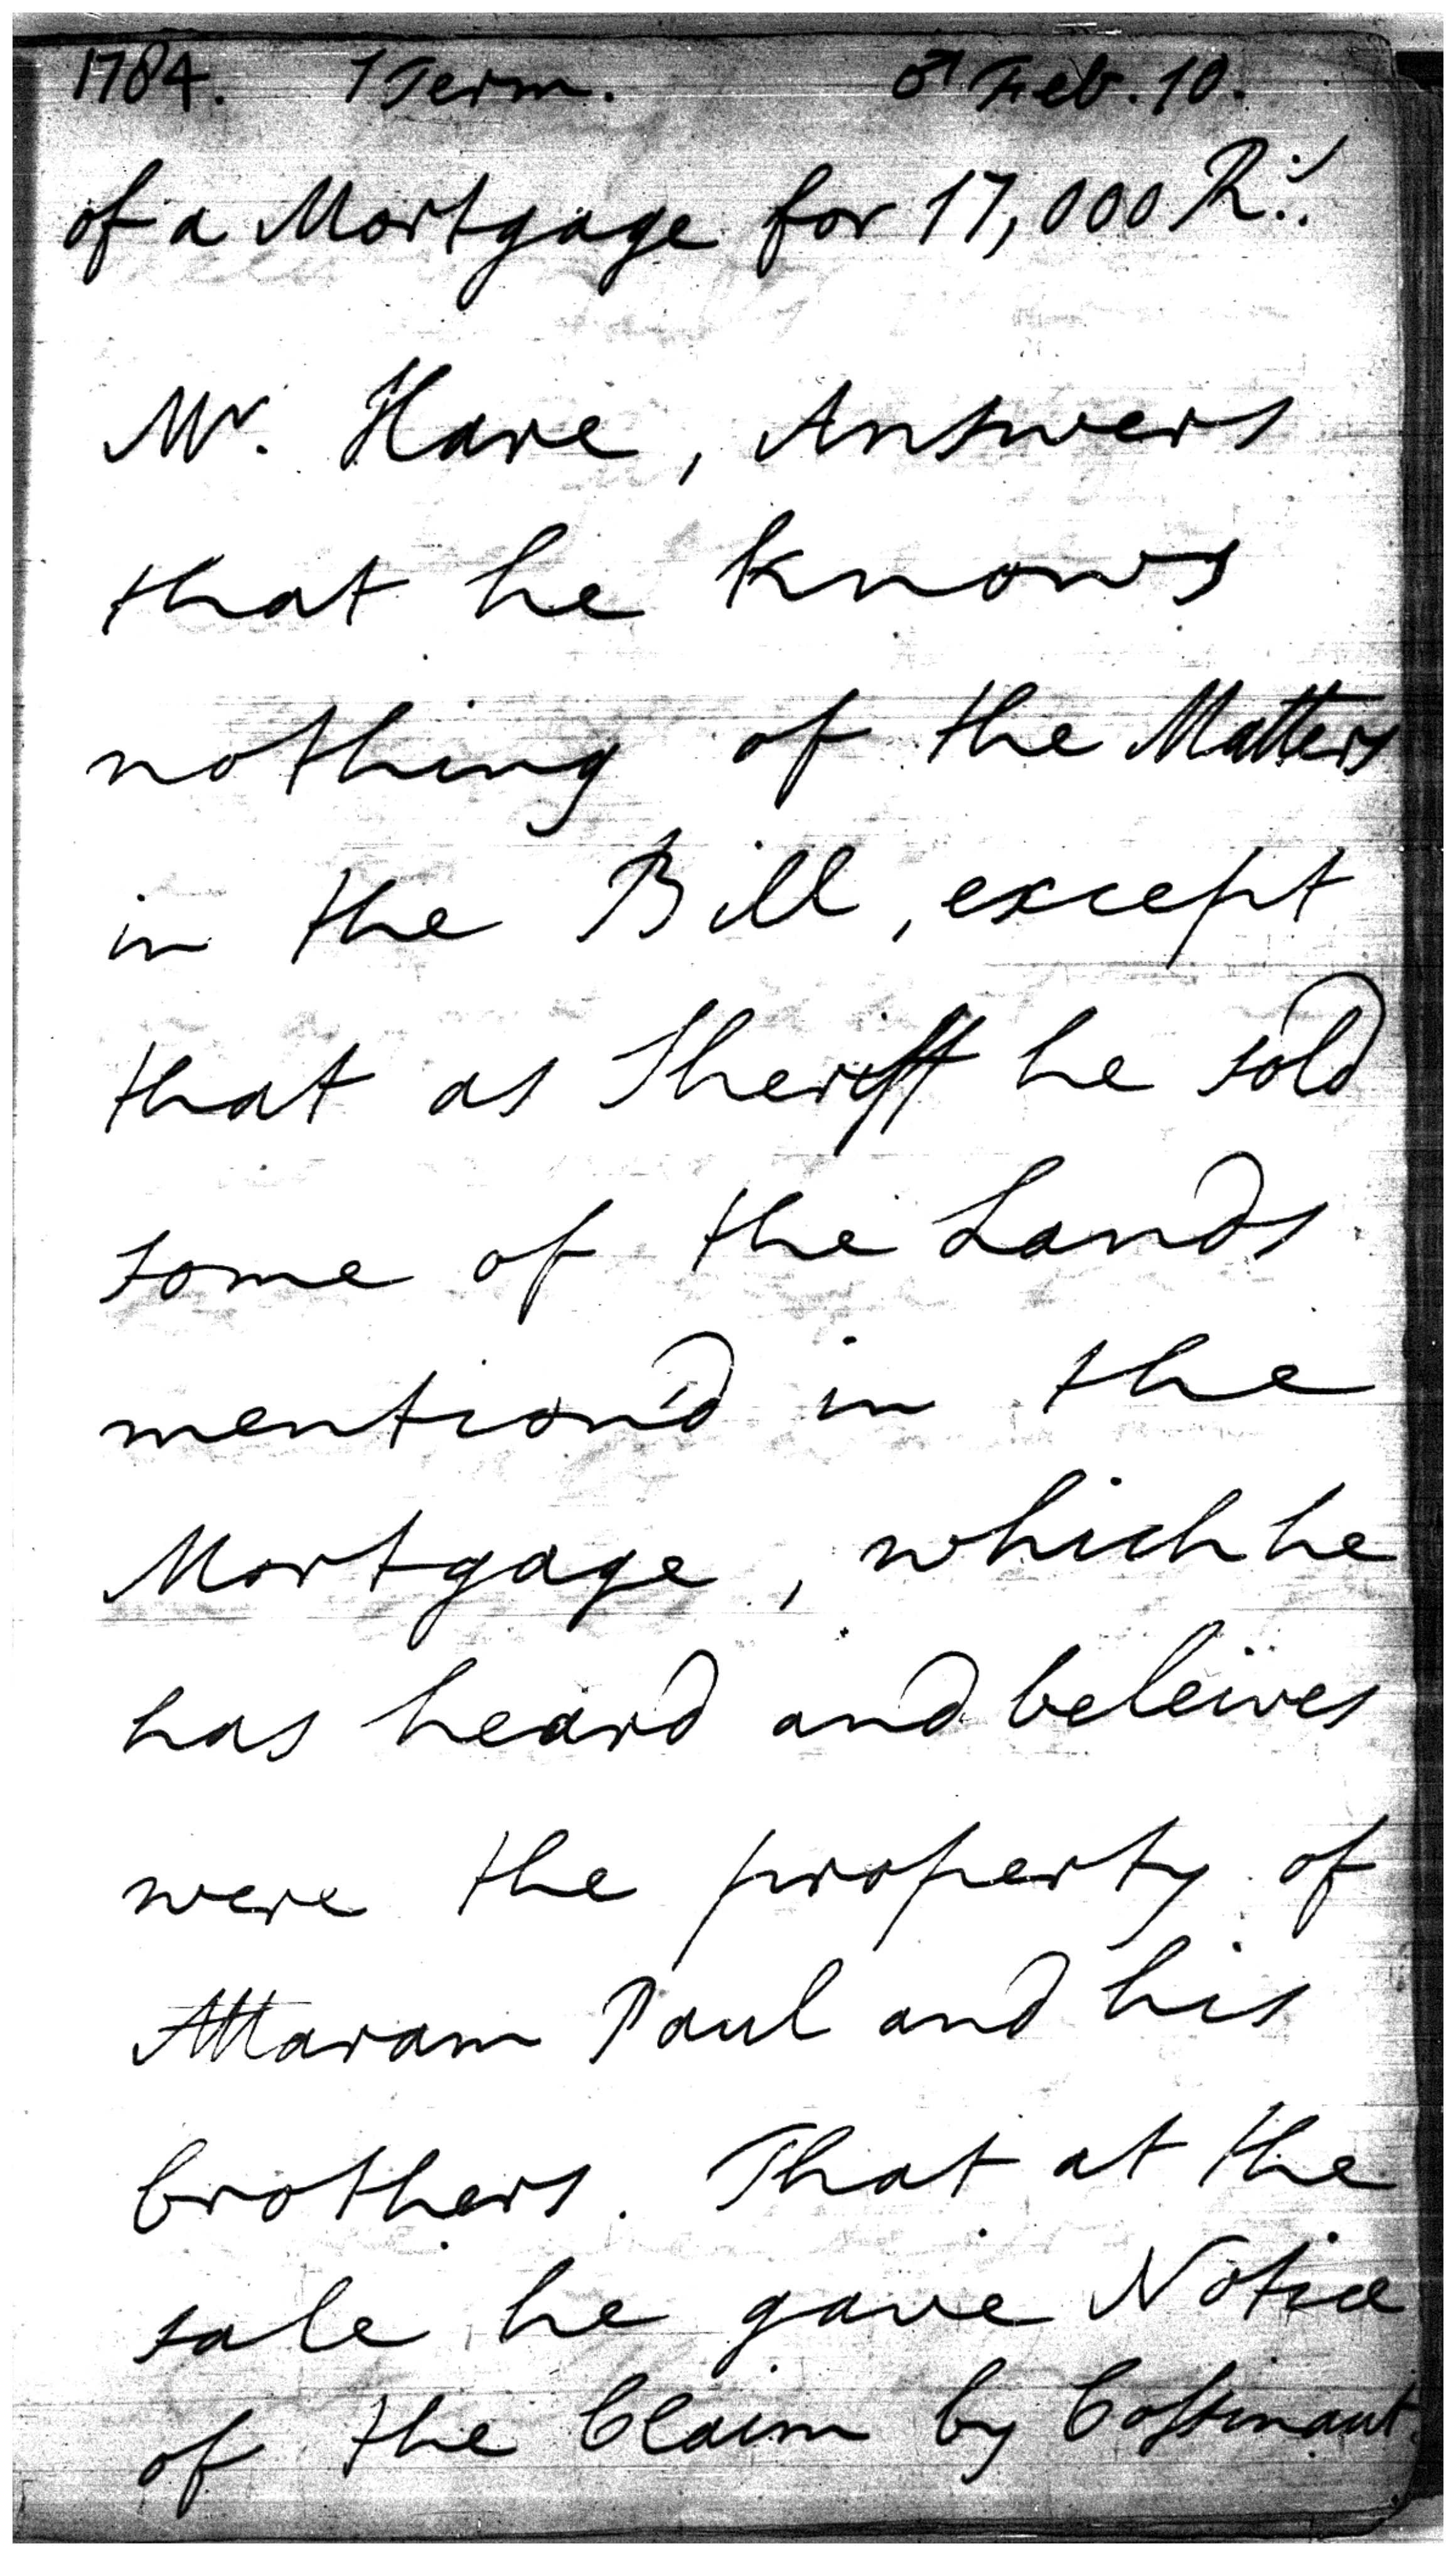 1784. 1 Term. ♂ Feb. 10.
of a Mortgage for 17,000 R.s.
Mr. Hare, Answers
that he knows
nothing of the Matters
in the Bill, except
that as Sheriff he sold
some of the Lands
mention'd in the
Mortgage, which he
has heard and beleives
were the property of
Attaram Paul and his
brothers. That at the
sale he gave Notice
of the Claim by Cossinaut.